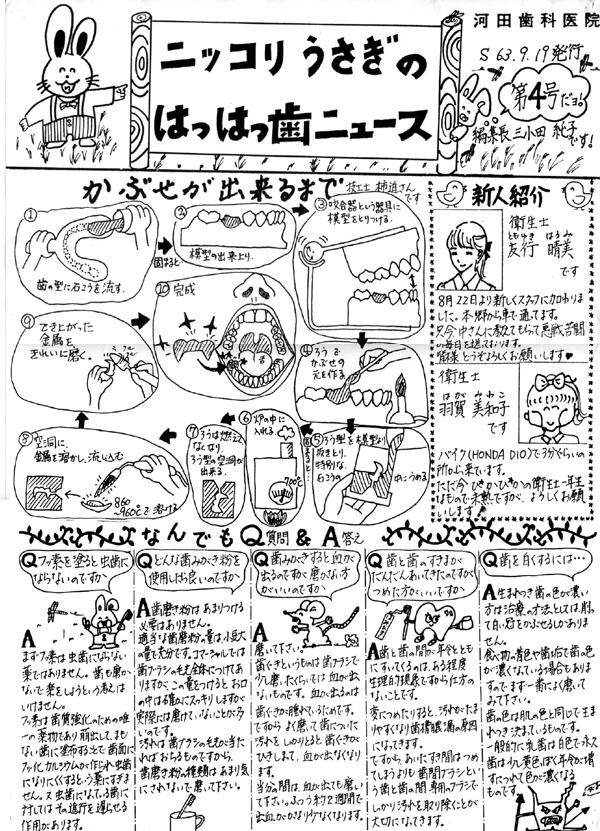 河田歯科医院
S63.9.19発行
第4号だよ。
編集長 三小田
です!
ニッコリうさぎの
はっはっ歯ニュース
かぶせが出来るまで
技工士 柿迫さん
です
①
歯の型に石こうを流す。
固まると
②
模型の出来上り。
③咬合器という器具に
模型をとりつける。
④ろうで
かぶせの
元を作る
⑤ろう型を模型より
抜きとり、
特別な
石こうの
中にうめる
⑥炉の中に
入れる。
700℃
⑦ろうは燃えて
なくなり
ろう型の空洞が
出来る。
⑧空洞に、
金属を溶かし、流し込む
860
~960℃で溶ける
⑨でき上がった
金属を
きれいに磨く。
⑩完成
新人紹介
衛生士
ともゆき はるみ
友行 晴美
です
8月22日より新しくスタッフに加わりま
した。本郷から車で通ってます。
只今中さんに教えてもらって悪戦苦闘
の毎日を過ごしております。
皆様どうぞよろしくお願いします♥
衛生士
はが みわこ
羽賀 美和子
です
バイク(HONDA DIO)で3分ぐらいの
所から来ています。
ただ今ぴかぴかの衛生士一年生
なもので未熟ですが、よろしくお願
いします
なんでもQ質問&A答え
Qフッ素を塗ると虫歯に
ならないのですか
A
まずフッ素は虫歯にならない
薬ではありません。歯も磨か
ないで楽をしようという考えは
いけません。
フッ素は歯質強化のための唯
一の薬物であり萌出して、まも
ない歯に塗布することで歯面に
フッ化カルシウムが作られ虫歯
になりにくくするという薬にすぎま
せん。又虫歯になっている歯に
対してはその進行を遅らせる
作用があります。
Qどんな歯みがき粉を
使用したら良いのですか
A歯磨き粉はあまりつける
必要はありません。
適当な歯磨粉の量は小豆大
の量で充分です。コマーシャルでは
歯ブラシの毛先全体につけてあ
りますが、この量をつけるとお口
の中は香りでスッキリしますが
実際には磨けていないことが多
いのです。
汚れは歯ブラシの毛先が当た
ればおちるものですから、
歯磨き粉の種類はあまり気
にされないで磨いて下さい。
Q歯みがきすると血が
出るのですが磨かない方
がいいのですか
A
磨いて下さい。
歯ぐきというものは歯ブラシで
少し磨いたくらいでは血が出な
いものです。血が出るのは
歯ぐきが腫れているためです。
ですから、よく磨いて歯についた
汚れをしっかりとると歯ぐきがひ
きしまって、血が出なくなりま
す。
当分の間は、血が出ても磨い
て下さい。ふつう約2週間で
出血がかなり少なくなります。
Q歯と歯のすきまが
だんだんあいてきたのですが
つめた方がいいですか
A歯と歯の間が年令とと
もにすいてくるのは、ある程度
生理的現象ですから仕方の
ないことです。
変につめたりすると、汚れがたま
りやすくなり歯槽膿漏の原因
になってきます。
ですから、あいたすき間はつめ
てしまうよりも歯間ブラシとい
う歯と歯の間専用のブラシで
しっかり汚れを取り除くことが
大切になってきます。
Q歯を白くするには…
A生まれつき歯の色が濃い
方は治療の方法としては、削っ
て白い冠をかぶせるしかありま
せん。
食べ物の着色や歯垢で歯の色
が濃くなっている場合もありま
すのでまず一番によく磨いて
みて下さい。
歯の色は肌の色と同じで生ま
れつき決まているものです。
一般的に乳歯は白色で永久
歯は少し黄色ぽく年令が増
すにつれて色が濃くなる
ものです。